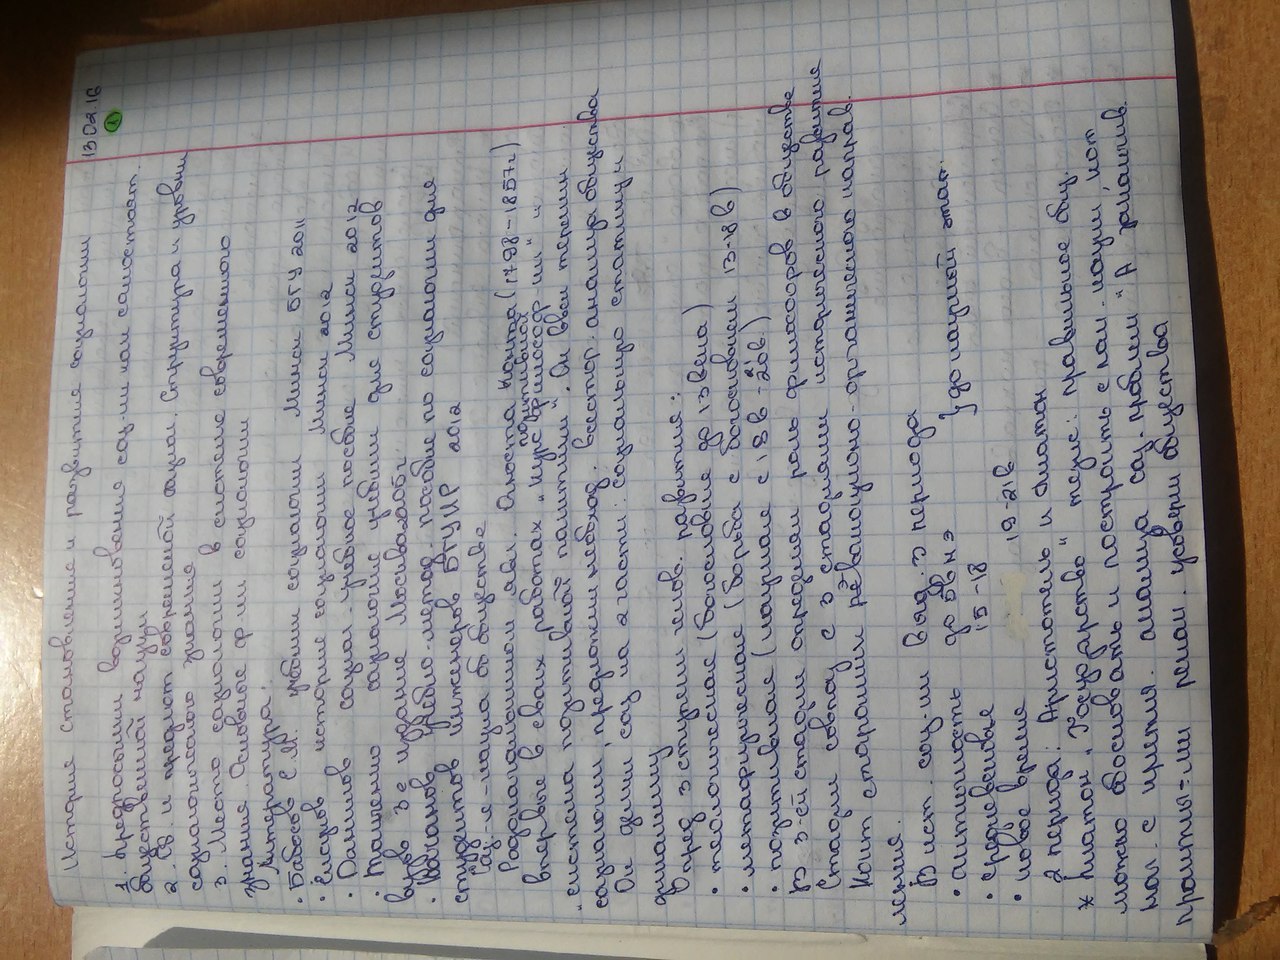 13.02.16
1
История становление и развитие социологии
1. Предпосылки возникновения соц-ии как самостоят.
общественной науки
2. Об. и предмет современной социол. Структура и уровни
социологического знания
3. Место социологии в системе современного
знания. Основные ф-ии социологии
Литература:
• Бабосов Е.М. учебник социологии Минск БГУ 2011
• Елсуков история социологии Минск 2012
• Данилов социол. учебное пособие Минск 2012
• Тощенко социология учебник для студентов
вузов 3е издание Москва 2012г.
• учебно-метод. пособие по социологии для
студентов инженеров БГУИР 2012
Соц-я - наука об обществе
Родоначальником явл. Огюста Конта (1798-1857г)
впервые в своих работах "Курс позитивной философии" и
"система позитивной политики". Он ввел термин
социологии, предложил необход. всестор. анализа общества
Он делил соц на 2 части: социальную статику и
динамику
Опред 3 ступени челов. развития:
• теологическая (богословие до 13 века)
• метафизическая (борьба с богословием 13-18 в)
• позитивная (научная с 18в - 20в.)
В 3-ей стадии определил роль философов в обществе
Стадии совпад с 3 стадиями исторического развития
Конт сторонник эволюционно-органического направ.
ления.
В ист. соц-ии выд. 3 периода
• античность до 5в нэ } донаучный этап.
• средневековье 15-18
• новое время 19-21в
2 периода: Аристотель и Платон
* Платон "Государство" тезис: правильное общ.
можно обосновать и построить с пом. науки, кот
нач. с критич. анализа соц. проблем. А закончив.